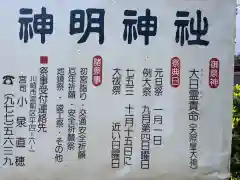 神明神社
御祭神
大日孁貴命
(天照皇大神)
祭典日
元日祭 一月一日
例大祭 九月第四日曜日
七五三 十一月十五日に
大祓祭 近い日曜日
諸祭事
初宮詣り・交通安全祈願
厄年祈願・安全祈願祭
地鎮祭・竣工祭・その他
祭事受付連絡先
川崎市宮前区平四-六-一
宮司 小泉直穂
☎(九七七)五六三九